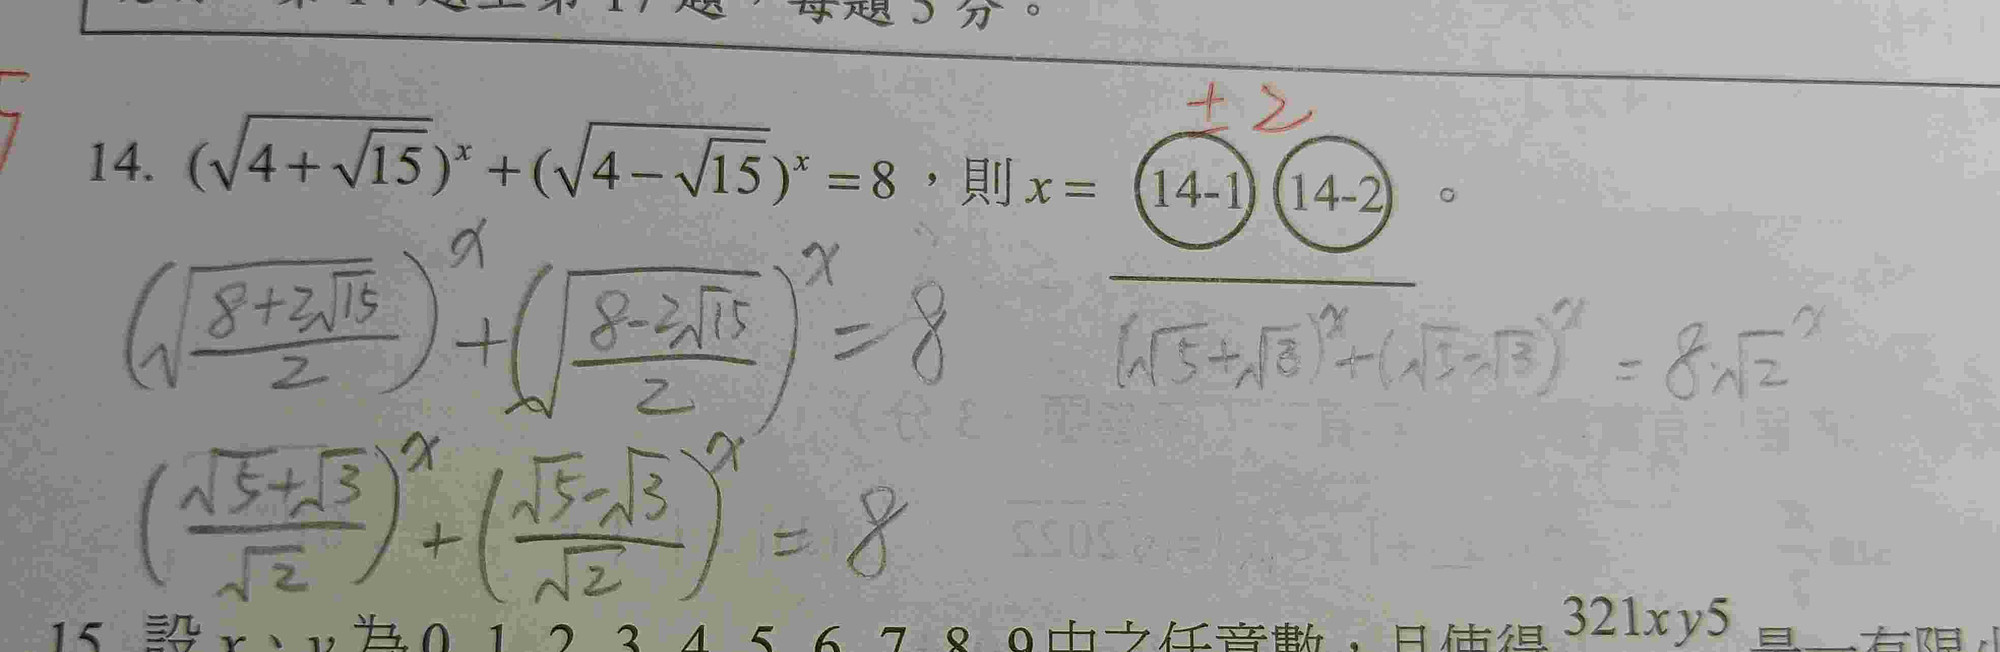 題，每題5分。
± 2
14. (√(4+√15))^x + (√(4−√15))^x = 8，則 x = (14-1) (14-2) 。
(√((8+2√15)/2))^x + (√((8-2√15)/2))^x = 8
(√5+√3)^x+(√5-√3)^x = 8·√2^x
((√5+√3)/√2)^x + ((√5-√3)/√2)^x = 8
15. 設 x、y 為 0, 1, 2, 3, 4, 5, 6, 7, 8, 9 中之任意數，且使得 321xy5 是一有限小